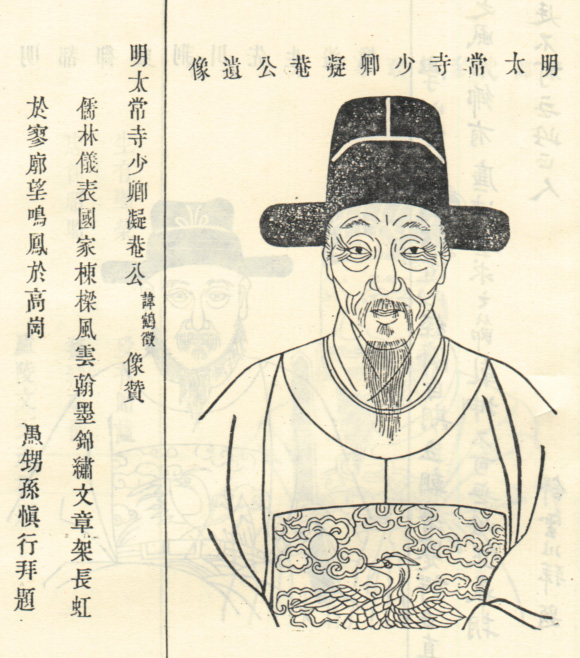 明太常寺少卿凝菴公遺像
明太常寺少卿凝菴公諱鶴徵像贊
儒林儀表國家棟樑風雲翰墨錦繡文章架長虹
於寥廓望鳴鳳於高崗 愚甥孫愼行拜題